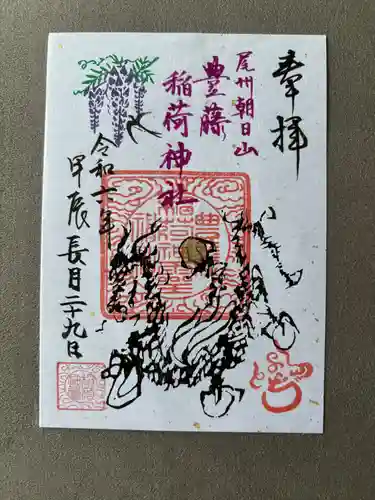 奉拝
尾州朝日山
豊藤
稲荷神社
令和
年
甲辰長月二十九日